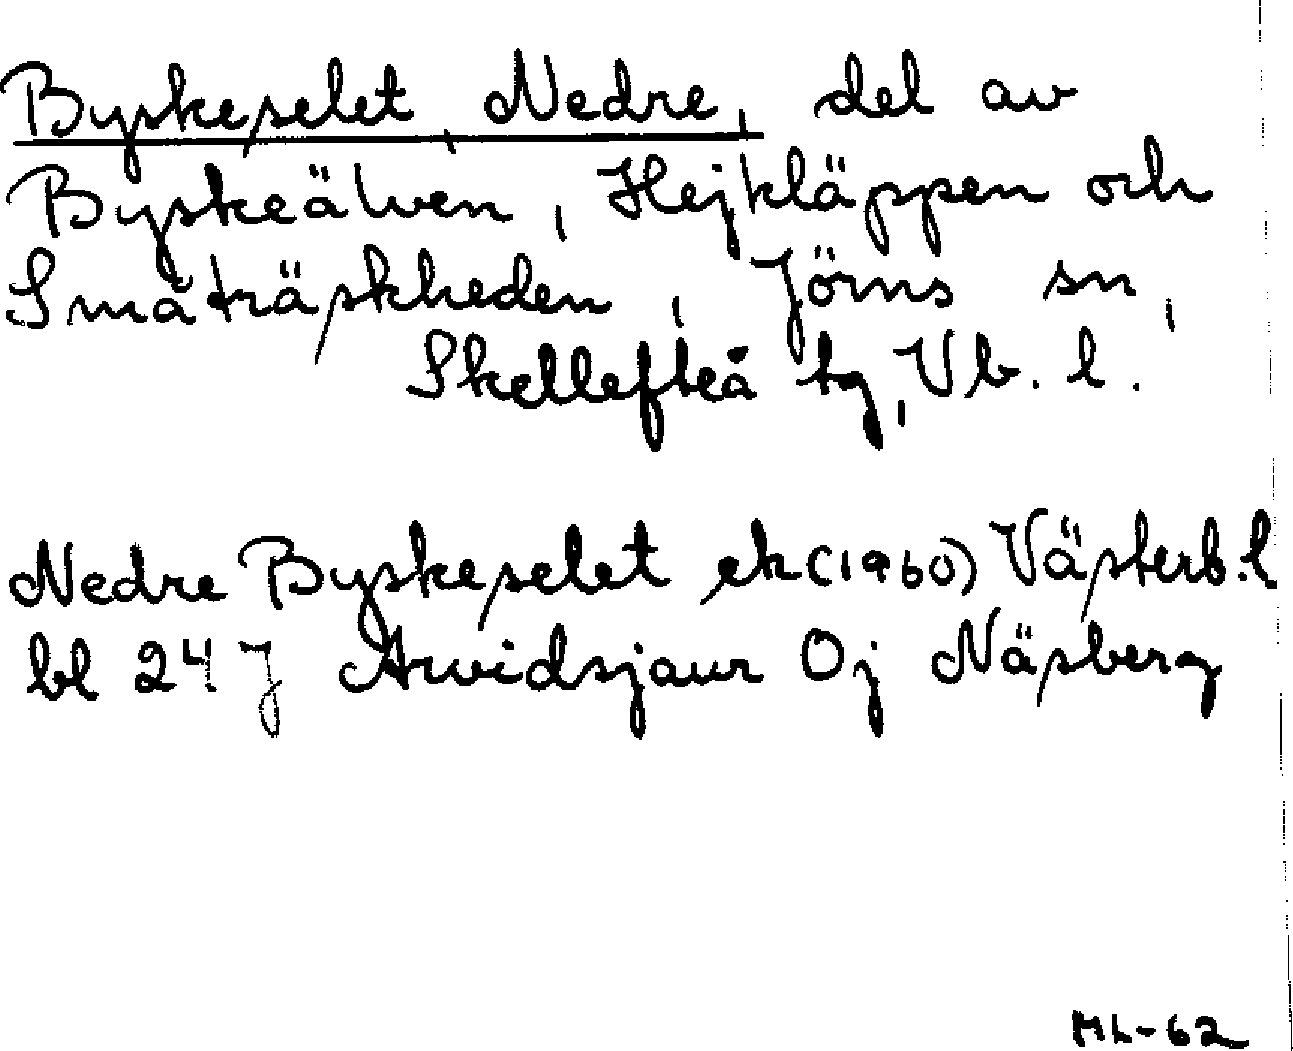 Byskeselet, Nedre, del av
Byskeälven, Hejkläppen och
Småträskheden, Jörns sn,
Skellefteå tg, Vb. l.
Nedre Byskeselet ek (1960) Västerb. l
bl 24 J Arvidsjaur Oj Näsberg
ML-62